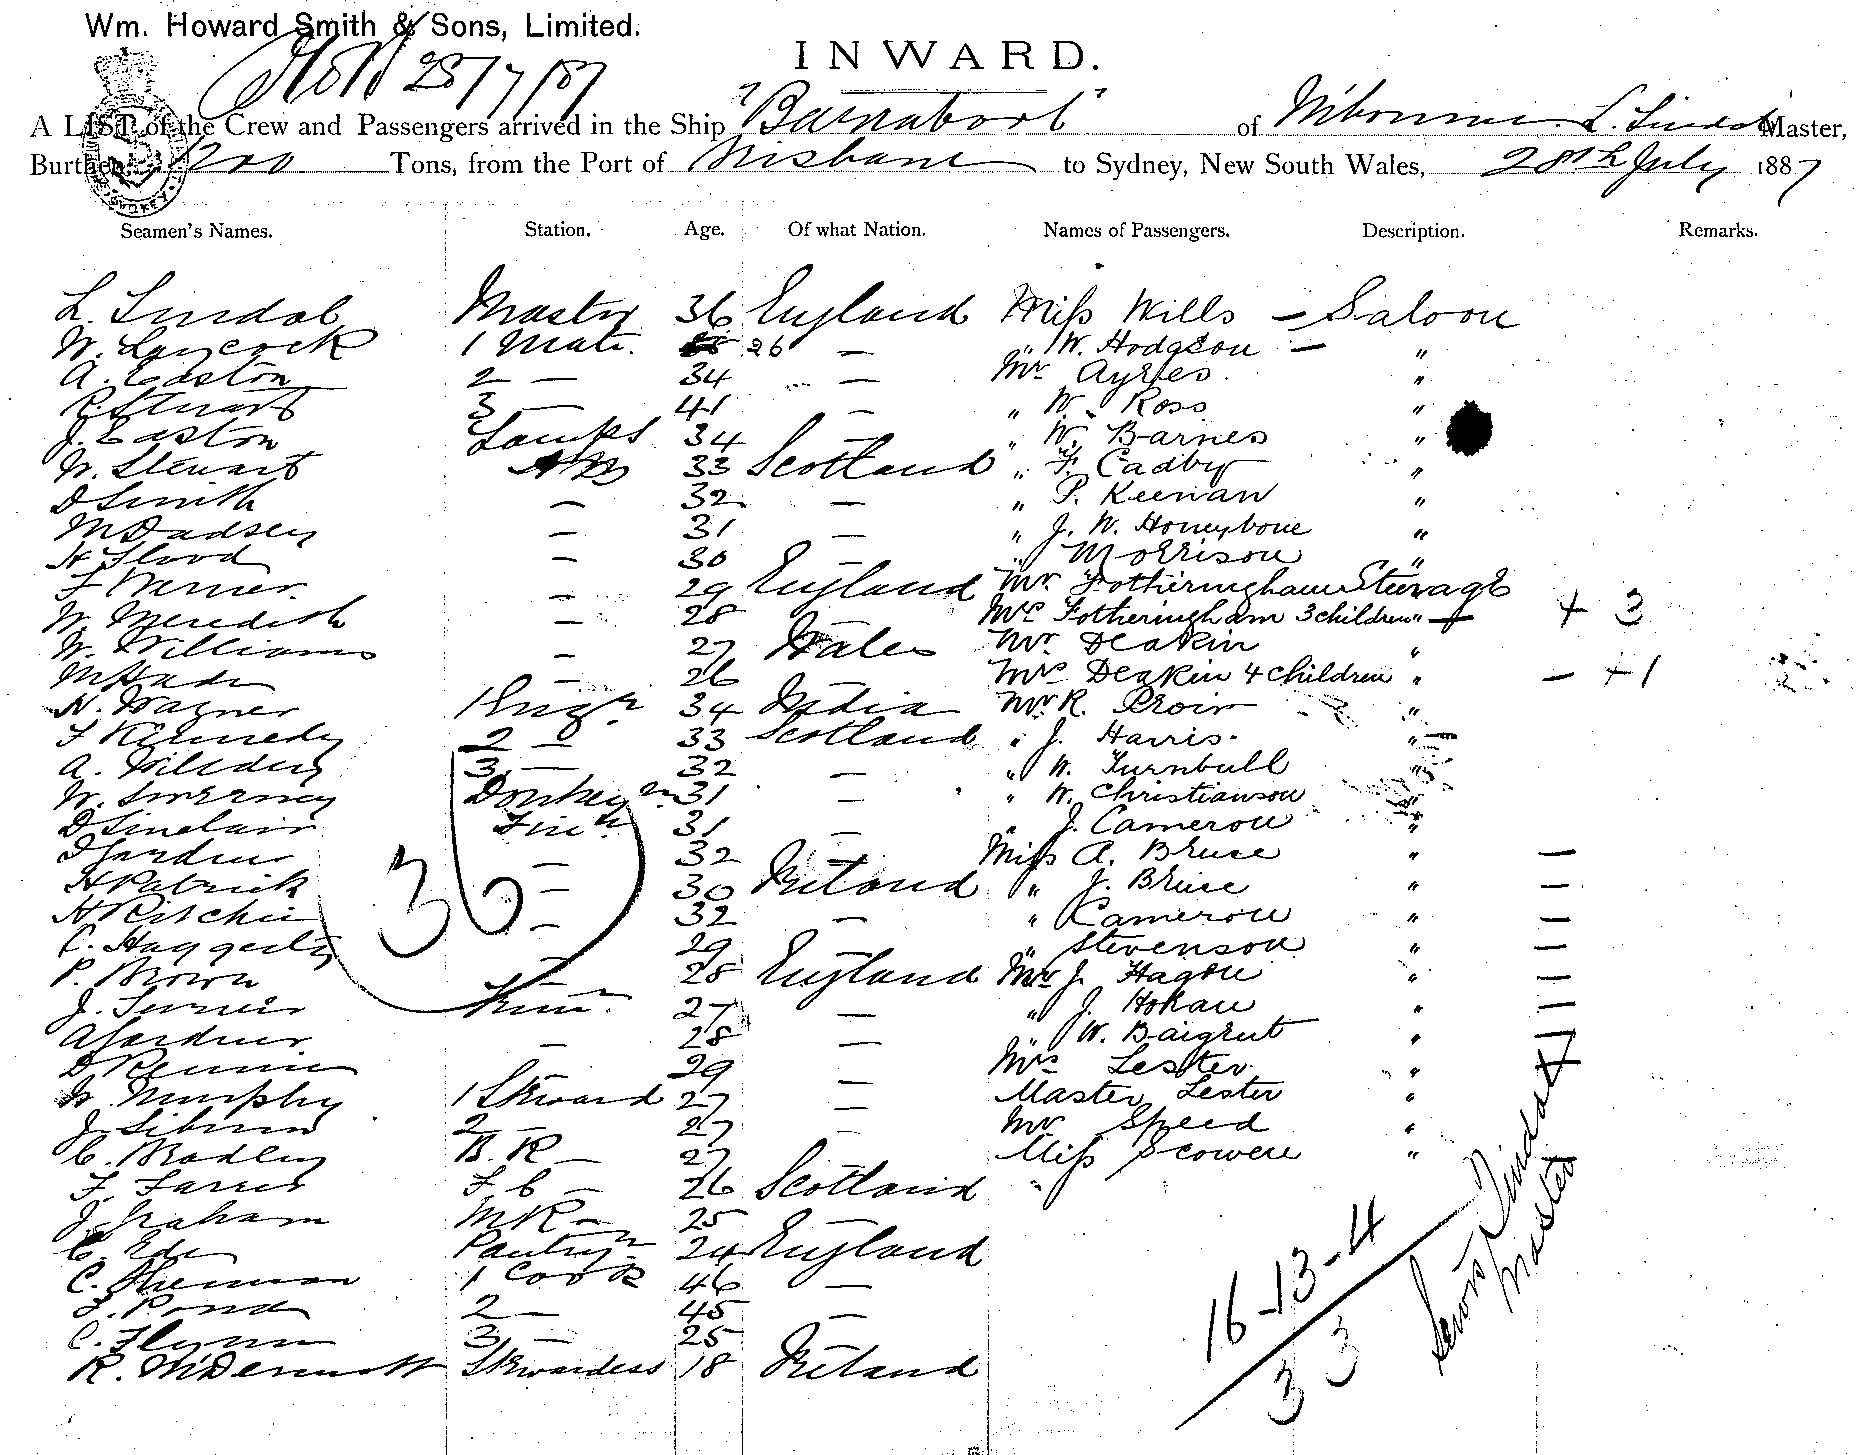 Wm. Howard Smith & Sons, Limited.
INWARD.
28/7/87
A LIST of the Crew and Passengers arrived in the Ship "Barrabool" of Melbourne L. Lindal Master,
Burthen 1200 Tons, from the Port of Brisbane to Sydney, New South Wales, 28th July 1887
Seamen's Names. Station. Age. Of what Nation. Names of Passengers. Description. Remarks.
L. Lindal Master 36 England Miss Wills — Saloon
W. Laycock 1 Mate. 26 — " W. Hodgson — "
A. Easton 2 — 34 — Mr Ayres "
R. Stuart 3 — 41 — " W. Ross "
J. Easton Lamps 34 — " W. Barnes "
W. Stewart AB 33 Scotland " F. Cadby "
D Smith — 32 — " P. Keenan "
M Dadsey — 31 — " J. W. Honeybone "
H Flood — 30 — " Morrison "
F Werner — 29 England Mr Fotheringham Steerage
W. Meredith — 28 Mrs Fotheringham 3 children " + 3
W. Williams — 27 Wales Mr Deakin "
— 26 Mrs Deakin 4 children " — + 1
N. Wagner 1 Engr 34 India Mr R. "
F Kennedy 2 — 33 Scotland " J. Harris. " —
A. 3 — 32 — " W. Turnbull "
W. Sweeney Donkeyn 31 — " W. Christianson "
D Sinclair Firen 31 — " J. Cameron "
Gardner — 32 Miss A. Bruce " —
H Patrick — 30 Ireland " J. Bruce " —
H Ritchie — 32 — " Cameron " —
C. Haggerty — 29 " Stevenson " —
P. Brown — 28 England Mr J. Hagon " —
J. Turner 27 — " J. Hokan " —
A Gardner. — 28 " W. Baigrut "
D Rennie 29 — Mrs Lester "
W. Murphy 1 Steward 27 — Master Lester "
J. 2 — 27 — Mr Speed "
C. Bradley B. R — 27 Miss Scowere "
F. Farrer F. C — 26 Scotland "
J. Graham M R — 25
C. Ede Pantryn 24 England
C. 1 Cook 46 —
F. Pond 2 — 45 —
C. Flynn 3 — 25
R. McDermott Stewardess 18 Ireland
36
16-13-4
33
Lindal
Master